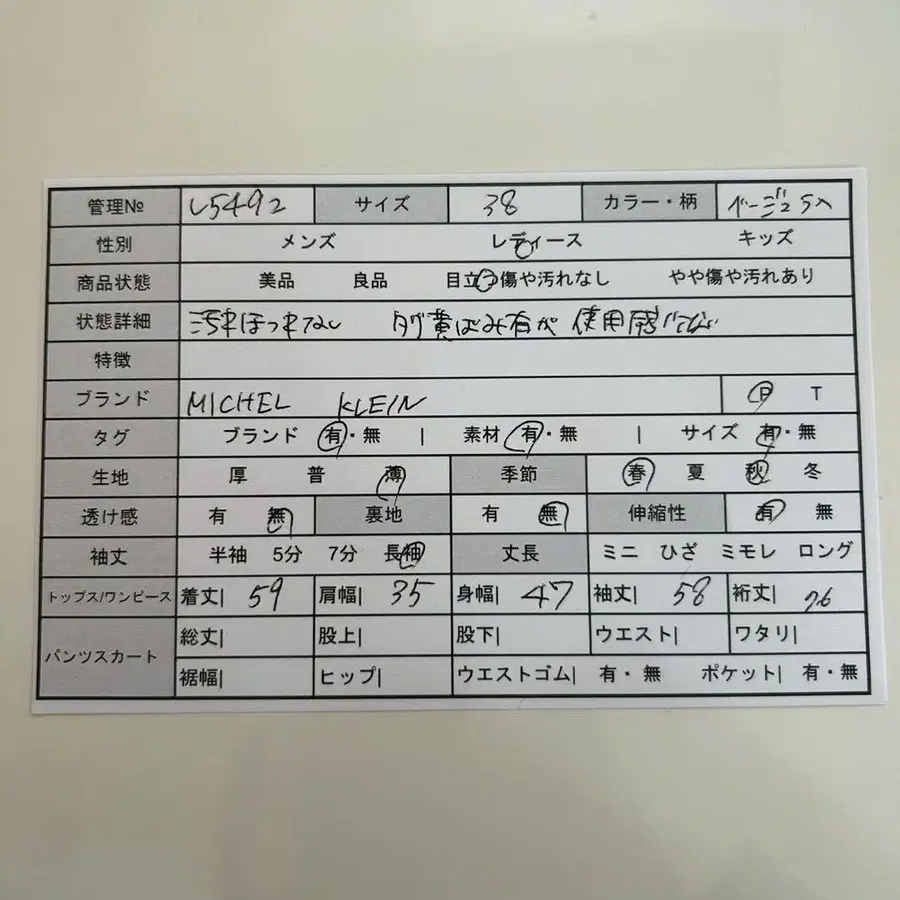 管理№ L5492 サイズ 38 カラー・柄 ベージュ
性別 メンズ レディース キッズ
商品状態 美品 良品 目立つ傷や汚れなし やや傷や汚れあり
状態詳細 汚れほつれなし タグ黄ばみ有が 使用感
特徴
ブランド MICHEL KLEIN P T
タグ ブランド 有・無 | 素材 有・無 | サイズ 有・無
生地 厚 普 薄 季節 春 夏 秋 冬
透け感 有 無 裏地 有 無 伸縮性 有 無
袖丈 半袖 5分 7分 長袖 丈長 ミニ ひざ ミモレ ロング
トップス/ワンピース 着丈| 59 肩幅| 35 身幅| 47 袖丈| 58 裄丈| 76
パンツスカート 総丈| 股上| 股下| ウエスト| ワタリ|
裾幅| ヒップ| ウエストゴム| 有・無 ポケット| 有・無